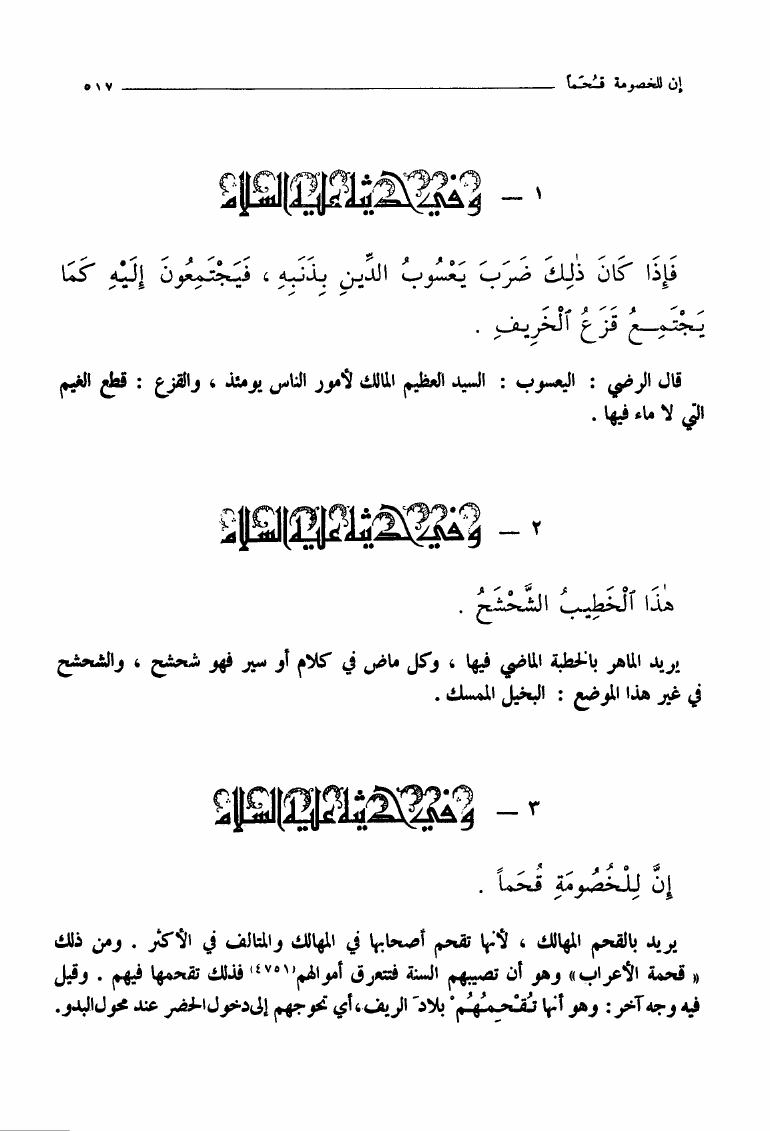 إن للخصومة قُحَماً ٥١٧
١ – وفي حديثه عليه السلام
فَإِذَا كَانَ ذٰلِكَ ضَرَبَ يَعْسُوبُ الدِّينِ بِذَنَبِهِ ، فَيَجْتَمِعُونَ إِلَيْهِ كَمَا
يَجْتَمِـعُ قَزَعُ ٱلْخَرِيفِ .
قال الرضي : اليعسوب : السيد العظيم المالك لأمور الناس يومئذ ، والقزع : قطع الغيم
التي لا ماء فيها .
٢ – وفي حديثه عليه السلام
هٰذَا ٱلْخَطِيبُ الشَّحْشَحُ .
يريد الماهر بالخطبة الماضي فيها ، وكل ماض في كلام أو سير فهو شحشح ، والشحشح
في غير هذا الموضع : البخيل الممسك .
٣ – وفي حديثه عليه السلام
إِنَّ لِلْخُصُومَةِ قُحَماً .
يريد بالقحم المهالك ، لأنها تقحم أصحابها في المهالك والمتالف في الأكثر . ومن ذلك
« قحمة الأعراب» وهو أن تصيبهم السنة فتتعرق أموالهم(٤٧٥١) فذلك تقحمها فيهم . وقيل
فيه وجه آخر : وهو أنها تُقْحِمُهُمْ بلادَ الريف، أي تحوجهم إلى دخول الحضر عند محول البدو.